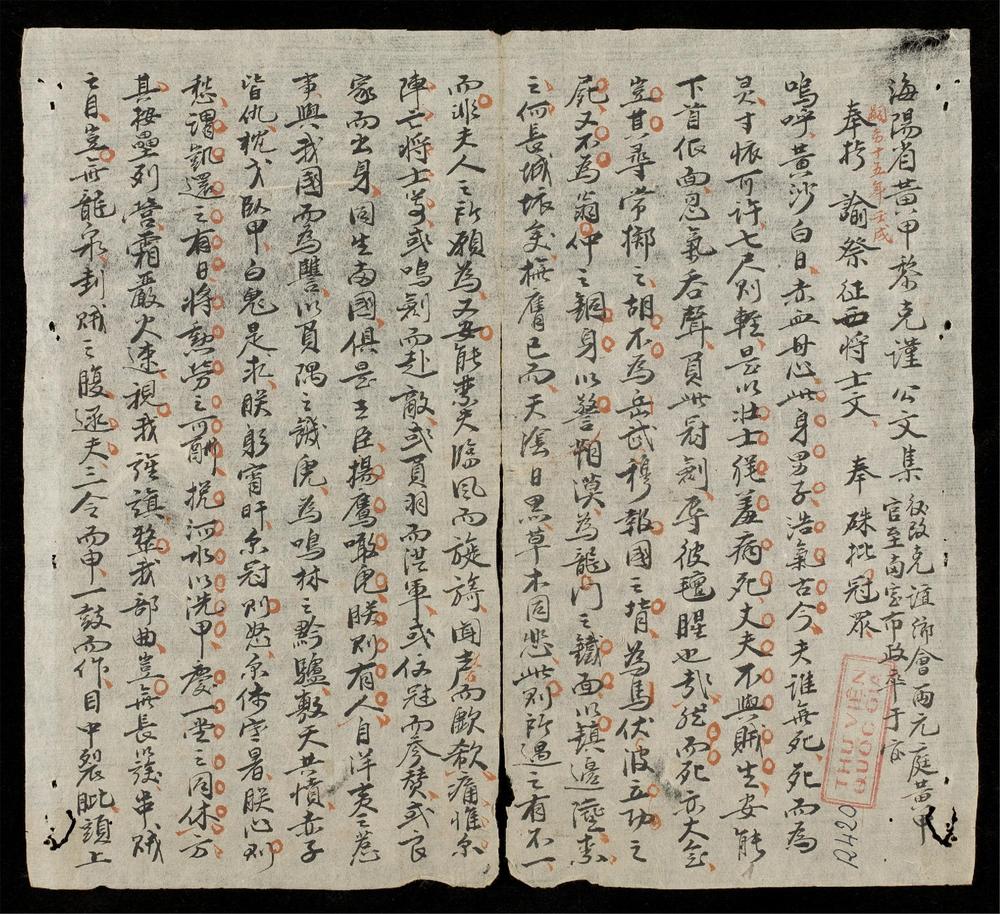 海陽省黃甲黎克謹公文集 後改克誼鄉會兩元庭黃甲
官至南定布政卒于官
嗣德十五年壬戌
奉擬 諭祭征西將士文、 奉 硃批冠眾
嗚呼、黃沙白日、赤血丹心、此身男子、浩氣古今、夫誰無死、死而為
灵、寸恢可許、七尺則軽、是以壯士羞病死、丈夫不與賊生、安能
下首低面、忍氣吞聲、負此冠劍、辱彼羶腥也哉、然而死亦大矣
豈其尋常擲之、胡不為岳武穆報國之背、為馬伏波立功之
屍、又不為翁仲之銅身以警朔漠、為龍門之鐵面以鎮邊陲、壽
之何長城坂矣、撫膺已而、天陰日黑、草木同悲、此則所遇之有不一
而非夫人之所願為、又安能禁夫臨風而旋旖、聞声而歔欷、痛惟尔
陣亡將士等、或鳴劍而赴敵、或負羽而從軍、或伍冠而參贊、或良
家而出身、同生南國、俱是王臣、揚鷹噉兔、朕則有人、自洋夷之惹
事與我國而為讐、以負隅之餓虎、為鳴林之黔驢、敷天共憤、赤子
皆仇、枕戈臥甲、白鬼是求、朕躬宵旰、尔冠則怒、尔体寒暑、朕心則
愁、謂凱還之有日、將勲勞之可酬、挽河水以洗甲、慶一堂之同休、方
其按壘列營、霜嚴火速、視我旌旗、整我部曲、豈無長以旋串賊
之目、豈無龍泉封賊之腹、逐夫三令而申、一鼓而作、目中裂眦、頭上
THƯ VIỆN
QUỐC GIA
R420